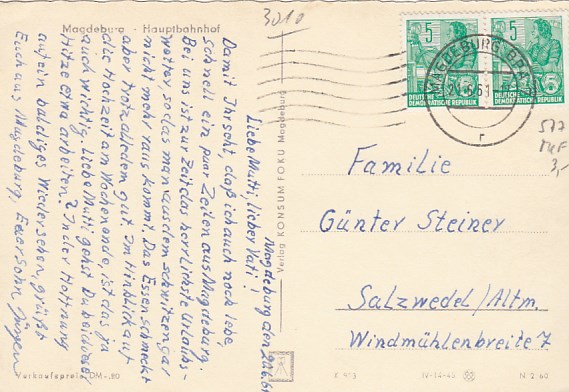 Magdeburg Hauptbahnhof
3010
Magdeburg den 20.6.61
Liebe Mutti, lieber Vati!
Damit Ihr seht, daß ich auch noch lebe,
schnell ein paar Zeilen aus Magdeburg.
Bei uns ist zur Zeit das herrlichste Urlaubs-
wetter, so das man aus dem schwitzen gar
nicht mehr raus kommt. Das Essen schmeckt
aber trotz alledem gut. Im Hinblick auf
die Hochzeit am Wochenende, ist das ja
auch wichtig. Liebe Mutti gehst Du bei dieser
Hitze etwa arbeiten? In der Hoffnung
auf ein baldiges Wiedersehen, grüßt
Euch aus Magdeburg, Euer Sohn Jürgen
Verkaufspreis DM -,20
Verlag KONSUM FOKU Magdeburg
5
5
DEUTSCHE
DEMOKRATISCHE REPUBLIK
DEUTSCHE
DEMOKRATISCHE REPUBLIK
MAGDEBURG
r
577
MeF
3,-
Familie
Günter Steiner
Salzwedel/Altm.
Windmühlenbreite 7
IV-14-45
N 2.60